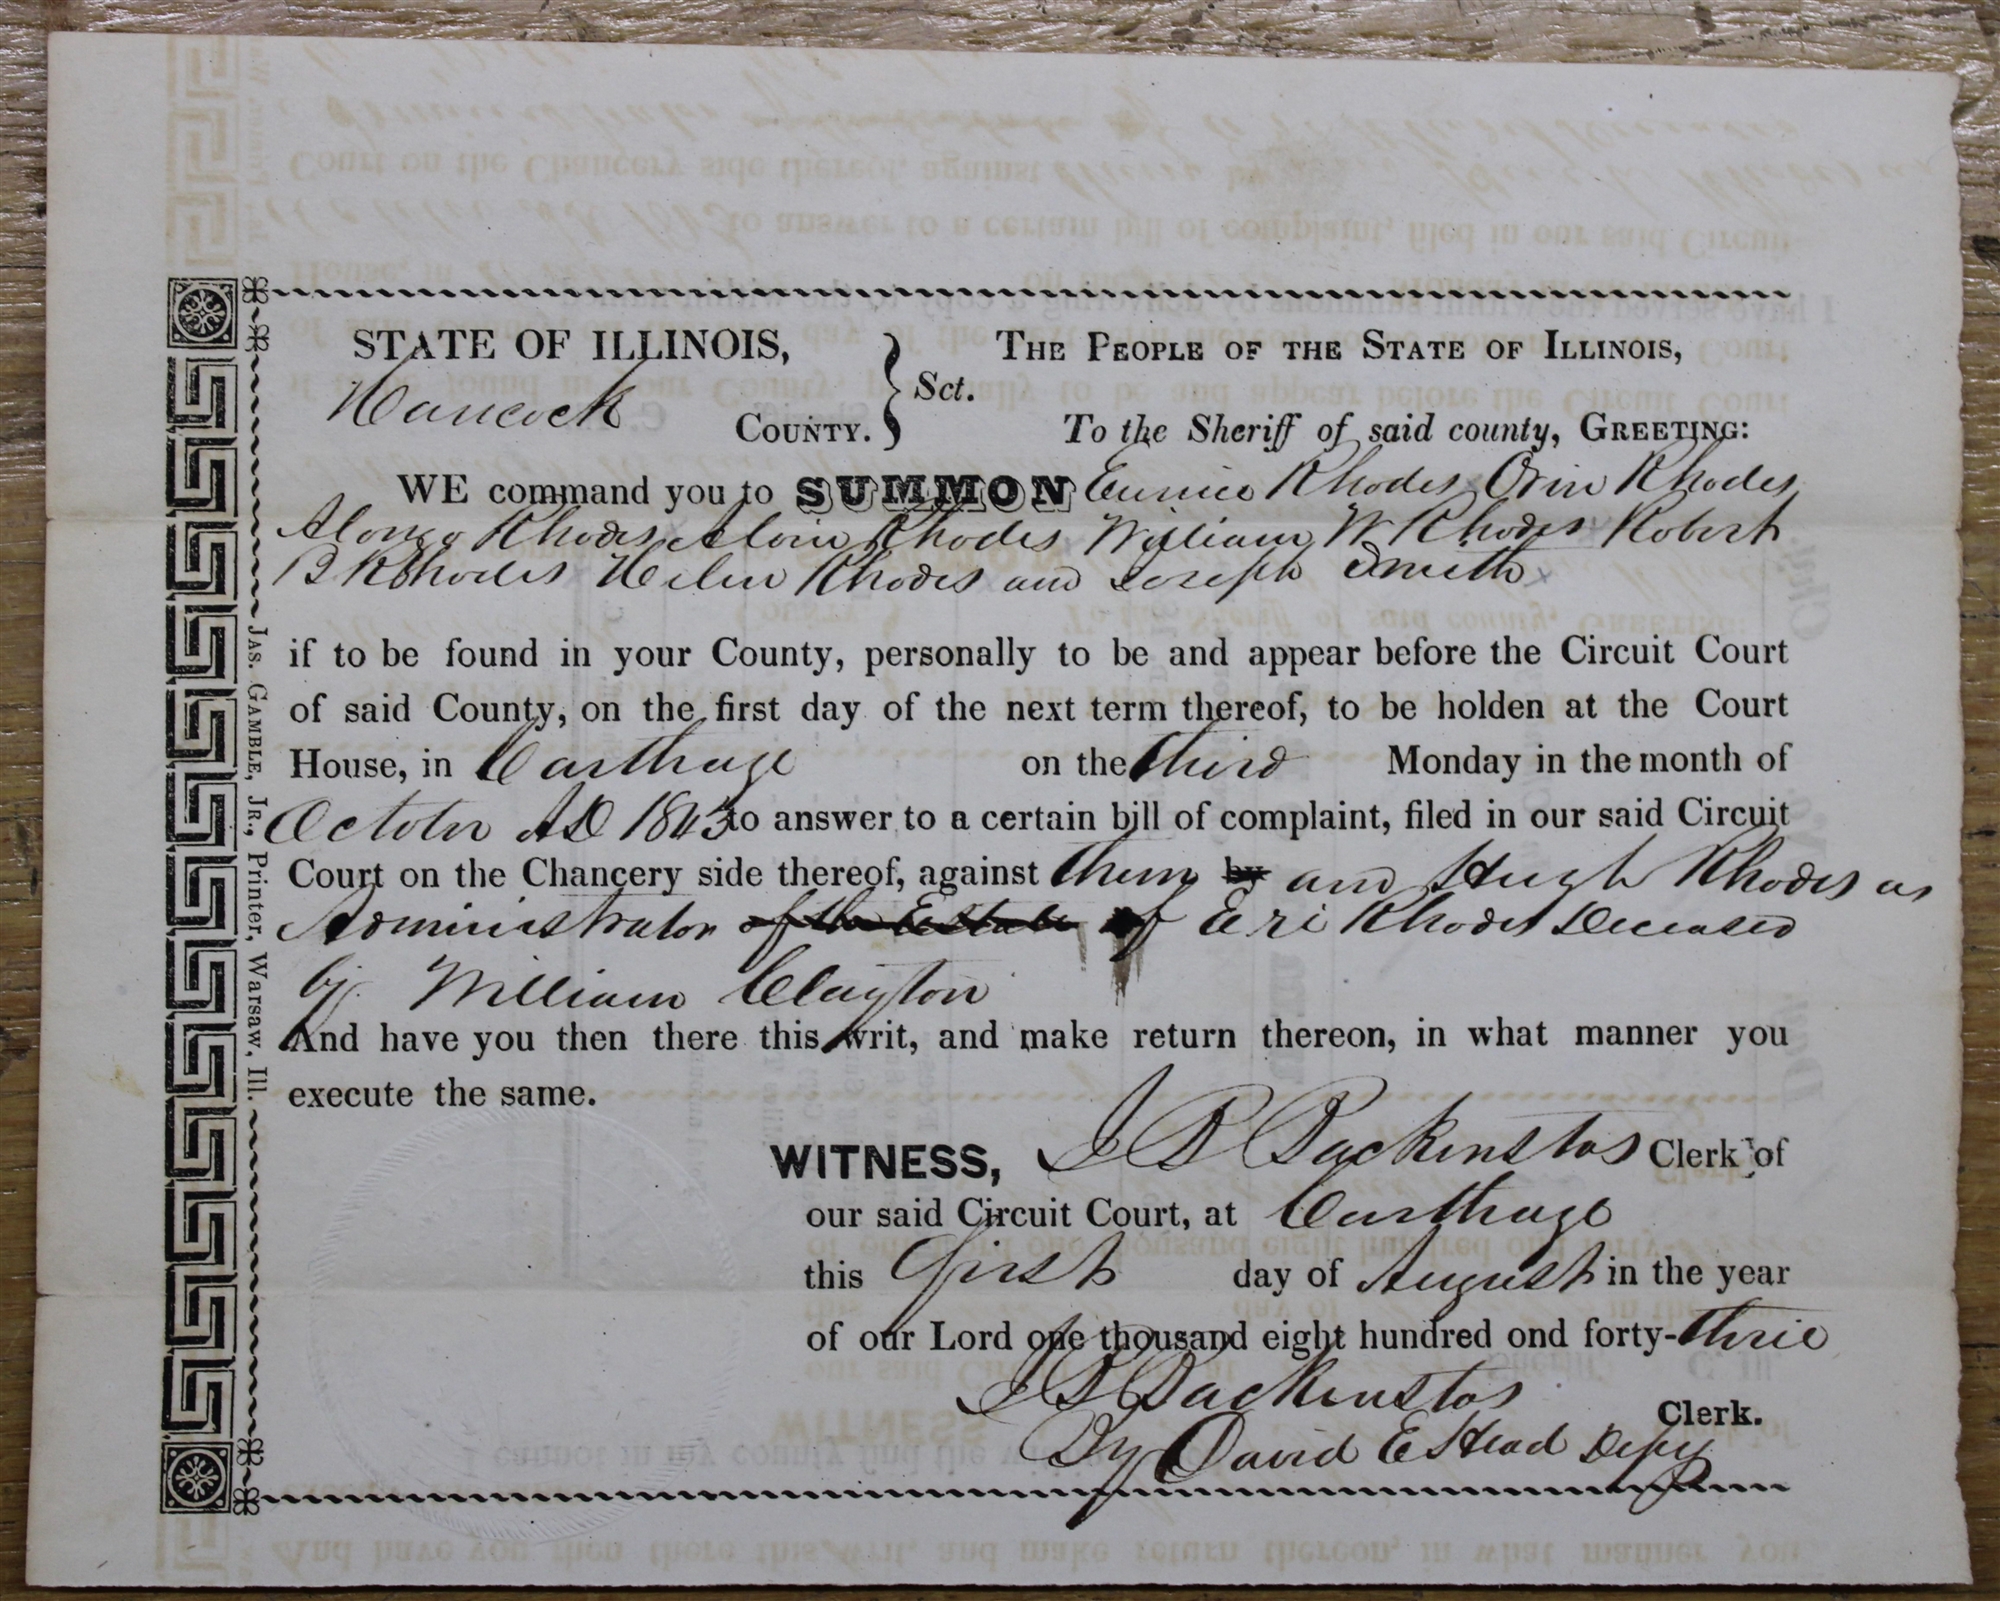 STATE OF ILLINOIS,
Hancock COUNTY.
Sct.
THE PEOPLE OF THE STATE OF ILLINOIS,
To the Sheriff of said county, GREETING:
WE command you to SUMMON Eunice Rhodes Orin Rhodes
Alonzo Rhodes Alvin Rhodes William W Rhodes Robert
B Rhodes Helen Rhodes and Joseph Smith
if to be found in your County, personally to be and appear before the Circuit Court
of said County, on the first day of the next term thereof, to be holden at the Court
House, in Carthage on the third Monday in the month of
October AD 1843 to answer to a certain bill of complaint, filed in our said Circuit
Court on the Chancery side thereof, against them by and Hugh Rhodes as
Administrator of the Estate of Eri Rhodes Deceased
by William Clayton
And have you then there this writ, and make return thereon, in what manner you
execute the same.
WITNESS, J B Backenstos Clerk of
our said Circuit Court, at Carthage
this first day of August in the year
of our Lord one thousand eight hundred ond forty-three
J B Backenstos Clerk.
By David E Head Depy
JAS. GAMBLE, JR., Printer, Warsaw, Ill.